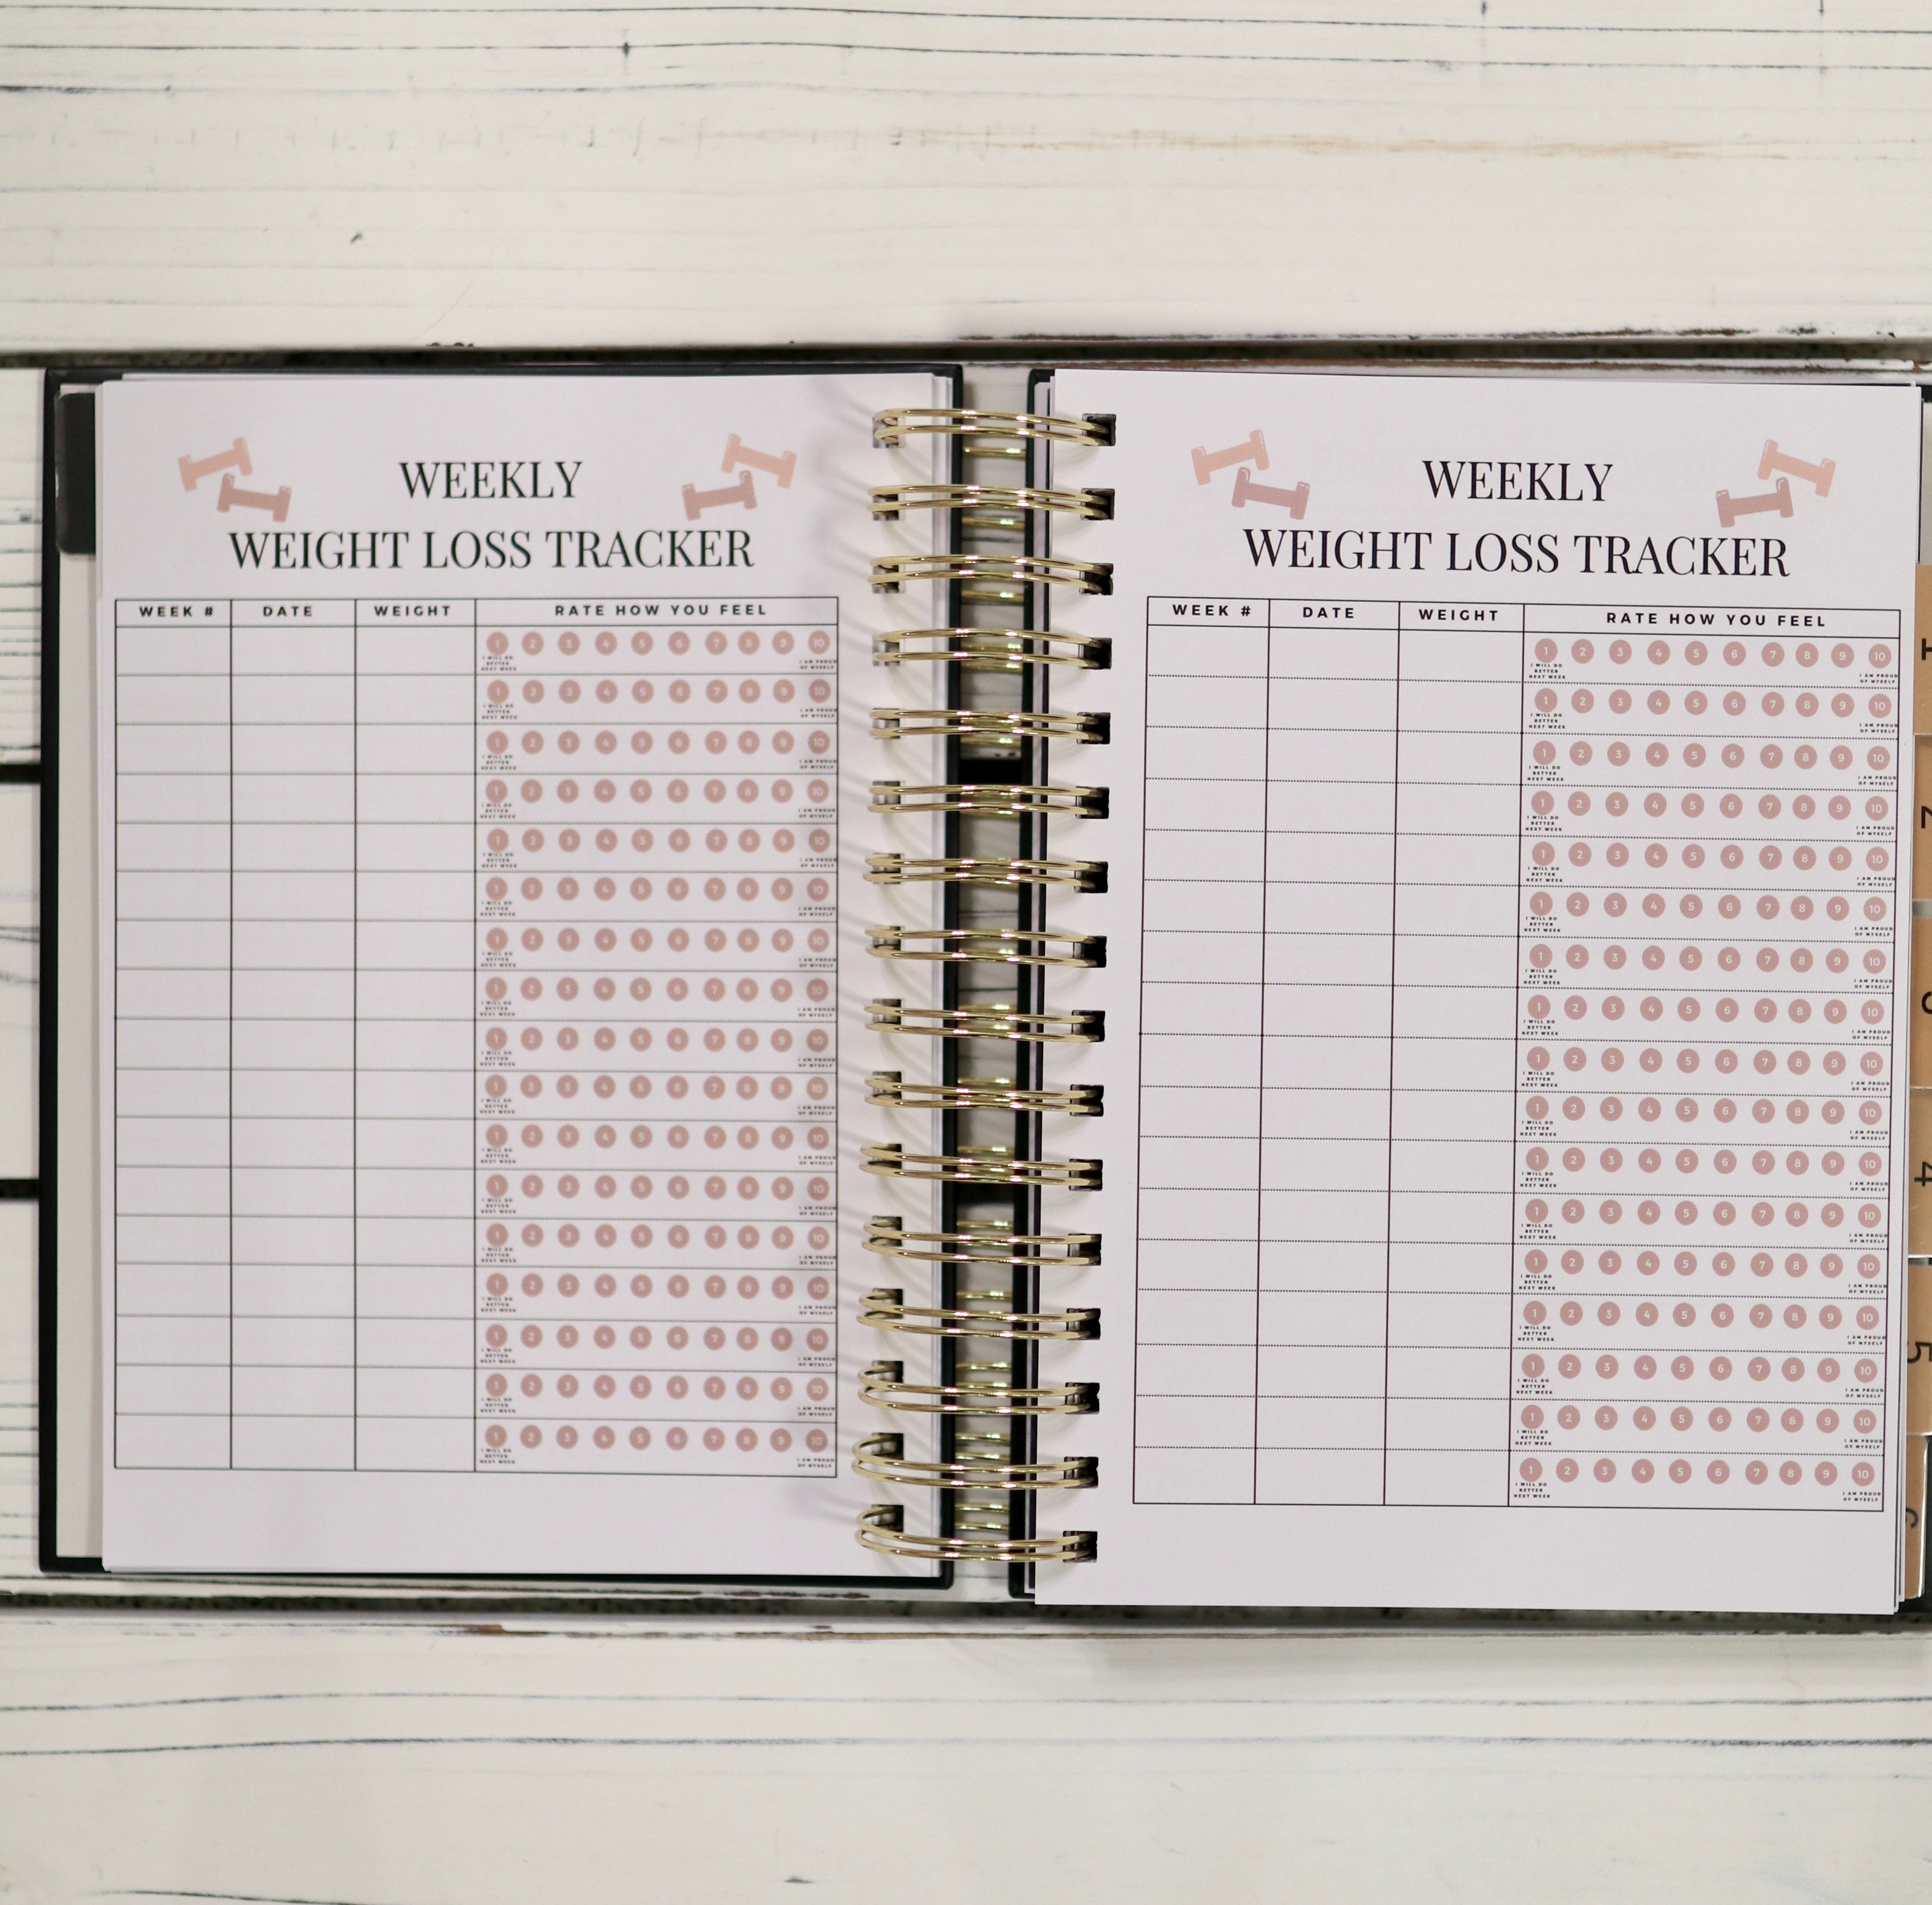 WEEKLY
WEIGHT LOSS TRACKER
WEEK # DATE WEIGHT RATE HOW YOU FEEL
1 2 3 4 5 6 7 8 9 10
I WILL DO BETTER NEXT WEEK I AM PROUD OF MYSELF
1 2 3 4 5 6 7 8 9 10
I WILL DO BETTER NEXT WEEK I AM PROUD OF MYSELF
1 2 3 4 5 6 7 8 9 10
I WILL DO BETTER NEXT WEEK I AM PROUD OF MYSELF
1 2 3 4 5 6 7 8 9 10
I WILL DO BETTER NEXT WEEK I AM PROUD OF MYSELF
1 2 3 4 5 6 7 8 9 10
I WILL DO BETTER NEXT WEEK I AM PROUD OF MYSELF
1 2 3 4 5 6 7 8 9 10
I WILL DO BETTER NEXT WEEK I AM PROUD OF MYSELF
1 2 3 4 5 6 7 8 9 10
I WILL DO BETTER NEXT WEEK I AM PROUD OF MYSELF
1 2 3 4 5 6 7 8 9 10
I WILL DO BETTER NEXT WEEK I AM PROUD OF MYSELF
1 2 3 4 5 6 7 8 9 10
I WILL DO BETTER NEXT WEEK I AM PROUD OF MYSELF
1 2 3 4 5 6 7 8 9 10
I WILL DO BETTER NEXT WEEK I AM PROUD OF MYSELF
1 2 3 4 5 6 7 8 9 10
I WILL DO BETTER NEXT WEEK I AM PROUD OF MYSELF
1 2 3 4 5 6 7 8 9 10
I WILL DO BETTER NEXT WEEK I AM PROUD OF MYSELF
1 2 3 4 5 6 7 8 9 10
I WILL DO BETTER NEXT WEEK I AM PROUD OF MYSELF
1 2 3 4 5 6 7 8 9 10
I WILL DO BETTER NEXT WEEK I AM PROUD OF MYSELF
1 2 3 4 5 6 7 8 9 10
I WILL DO BETTER NEXT WEEK I AM PROUD OF MYSELF
1 2 3 4 5 6 7 8 9 10
I WILL DO BETTER NEXT WEEK I AM PROUD OF MYSELF
1 2 3 4 5 6 7 8 9 10
I WILL DO BETTER NEXT WEEK I AM PROUD OF MYSELF
WEEKLY
WEIGHT LOSS TRACKER
WEEK # DATE WEIGHT RATE HOW YOU FEEL
1 2 3 4 5 6 7 8 9 10
I WILL DO BETTER NEXT WEEK I AM PROUD OF MYSELF
1 2 3 4 5 6 7 8 9 10
I WILL DO BETTER NEXT WEEK I AM PROUD OF MYSELF
1 2 3 4 5 6 7 8 9 10
I WILL DO BETTER NEXT WEEK I AM PROUD OF MYSELF
1 2 3 4 5 6 7 8 9 10
I WILL DO BETTER NEXT WEEK I AM PROUD OF MYSELF
1 2 3 4 5 6 7 8 9 10
I WILL DO BETTER NEXT WEEK I AM PROUD OF MYSELF
1 2 3 4 5 6 7 8 9 10
I WILL DO BETTER NEXT WEEK I AM PROUD OF MYSELF
1 2 3 4 5 6 7 8 9 10
I WILL DO BETTER NEXT WEEK I AM PROUD OF MYSELF
1 2 3 4 5 6 7 8 9 10
I WILL DO BETTER NEXT WEEK I AM PROUD OF MYSELF
1 2 3 4 5 6 7 8 9 10
I WILL DO BETTER NEXT WEEK I AM PROUD OF MYSELF
1 2 3 4 5 6 7 8 9 10
I WILL DO BETTER NEXT WEEK I AM PROUD OF MYSELF
1 2 3 4 5 6 7 8 9 10
I WILL DO BETTER NEXT WEEK I AM PROUD OF MYSELF
1 2 3 4 5 6 7 8 9 10
I WILL DO BETTER NEXT WEEK I AM PROUD OF MYSELF
1 2 3 4 5 6 7 8 9 10
I WILL DO BETTER NEXT WEEK I AM PROUD OF MYSELF
1 2 3 4 5 6 7 8 9 10
I WILL DO BETTER NEXT WEEK I AM PROUD OF MYSELF
1 2 3 4 5 6 7 8 9 10
I WILL DO BETTER NEXT WEEK I AM PROUD OF MYSELF
1 2 3 4 5 6 7 8 9 10
I WILL DO BETTER NEXT WEEK I AM PROUD OF MYSELF
1 2 3 4 5 6 7 8 9 10
I WILL DO BETTER NEXT WEEK I AM PROUD OF MYSELF
1
2
4
5